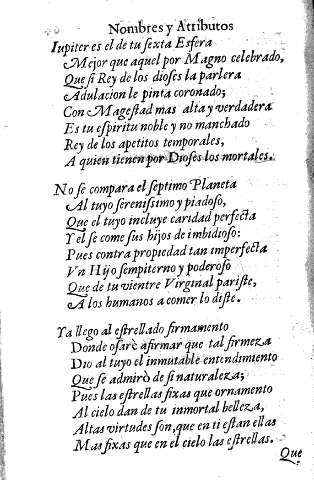 Nombres y Atributos
Iupiter es el de tu sexta Esfera
Mejor que aquel por Magno celebrado,
Que si Rey de los dioses la parlera
Adulacion le pinta coronado;
Con Magestad mas alta y verdadera
Es tu espiritu noble y no manchado
Rey de los apetitos temporales,
A quien tienen por Dioses los mortales.
No se compara el septimo Planeta
Al tuyo serenissimo y piadoso,
Que el tuyo incluye caridad perfecta
Y el se come sus hijos de imbidioso:
Pues contra propiedad tan imperfecta
Vn Hijo sempiterno y poderoso
Que de tu vientre Virginal pariste,
A los humanos a comer lo diste.
Ya llego al estrellado firmamento
Donde osarè afirmar que tal firmeza
Dio al tuyo el inmutable entendimiento
Que se admirò de si naturaleza;
Pues las estrellas fixas que ornamento
Al cielo dan de tu inmortal belleza,
Altas virtudes son, que en ti estan ellas
Mas fixas que en el cielo las estrellas.
Que